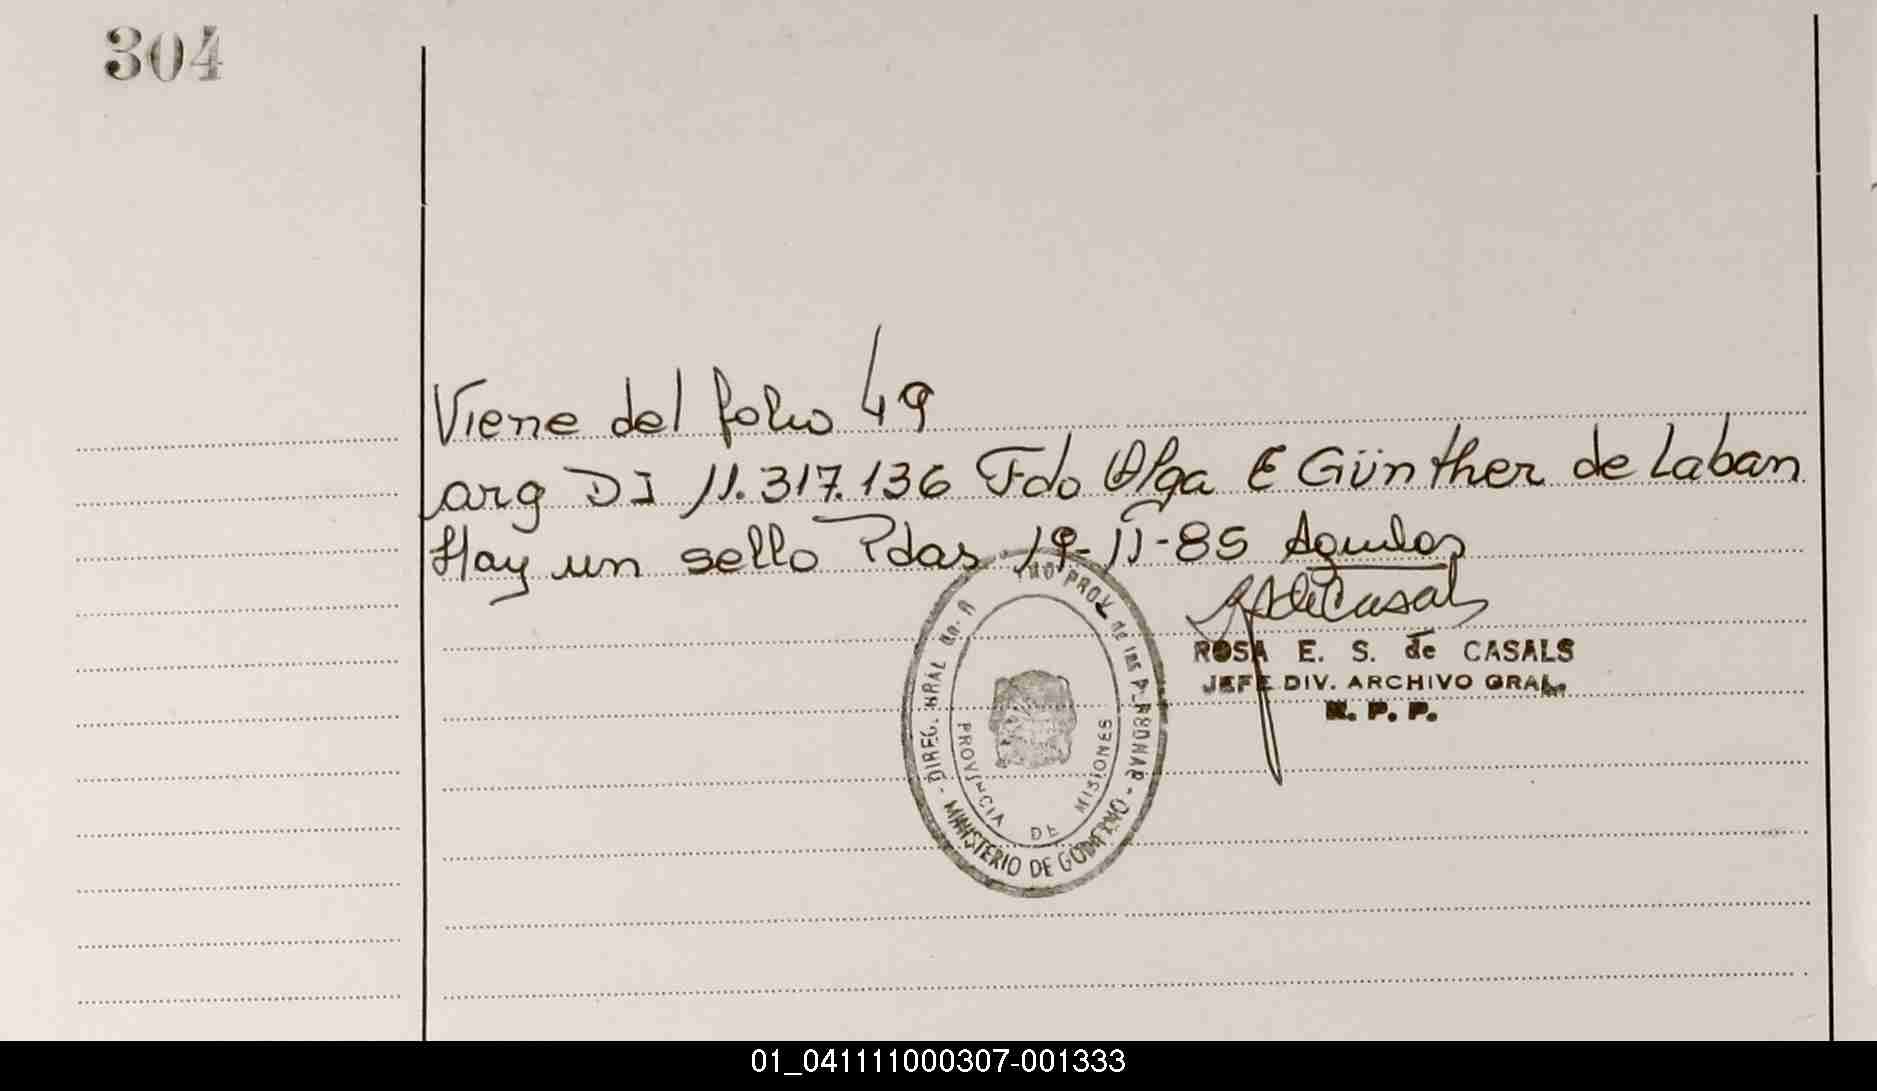 304
Viene del folio 49
arg DI 11.317.136 Fdo Olga E Günther de Laban
Hay un sello Pdas 19-11-85
ROSA E. S. de CASALS
JEFE DIV. ARCHIVO GRAL.
R. P. P.
PROV. de las
MINISTERIO DE GOBIERNO
PROVINCIA DE MISIONES
01_041111000307-001333